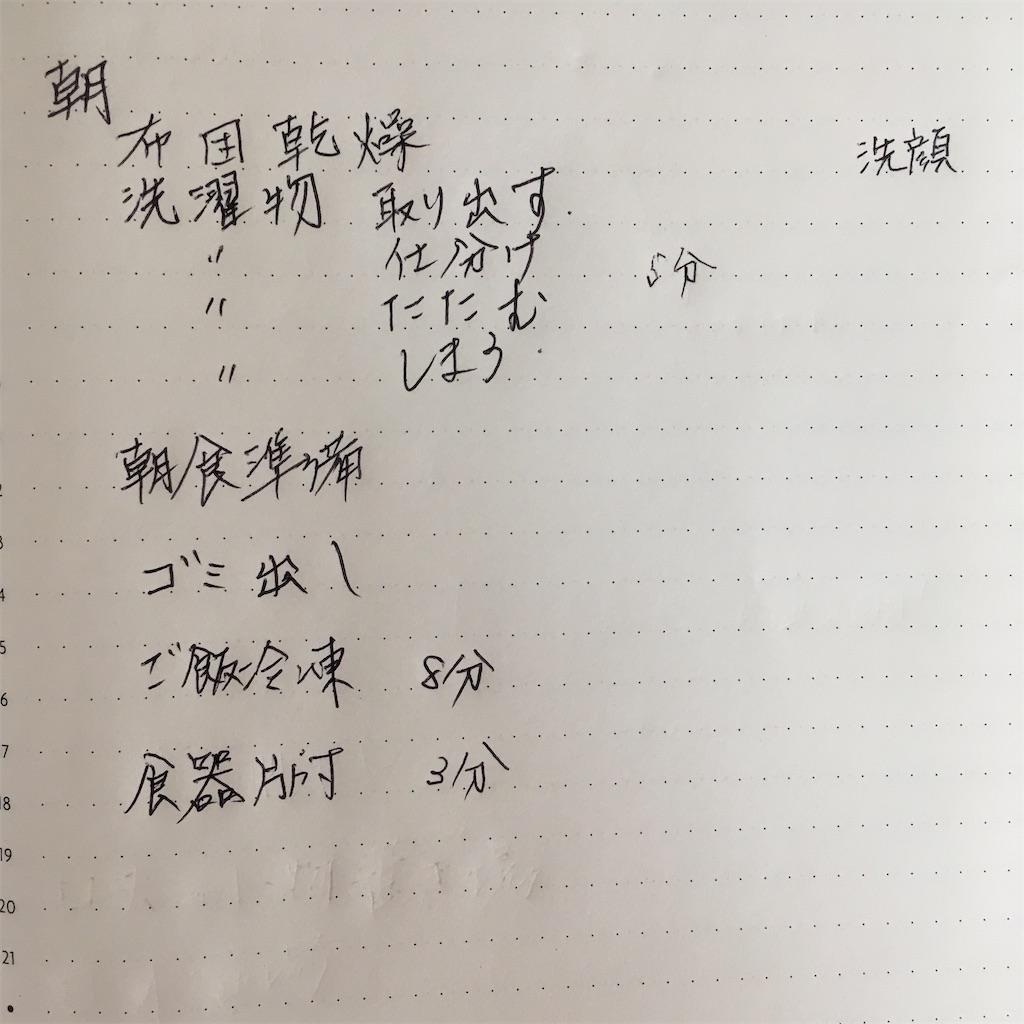 朝
布団乾燥 洗顔
洗濯物 取り出す
〃 仕分け 5分
〃 たたむ
〃 しまう
朝食準備
ゴミ出し
ご飯冷凍 8分
食器片付 3分
2
3
4
5
6
7
18
19
20
21